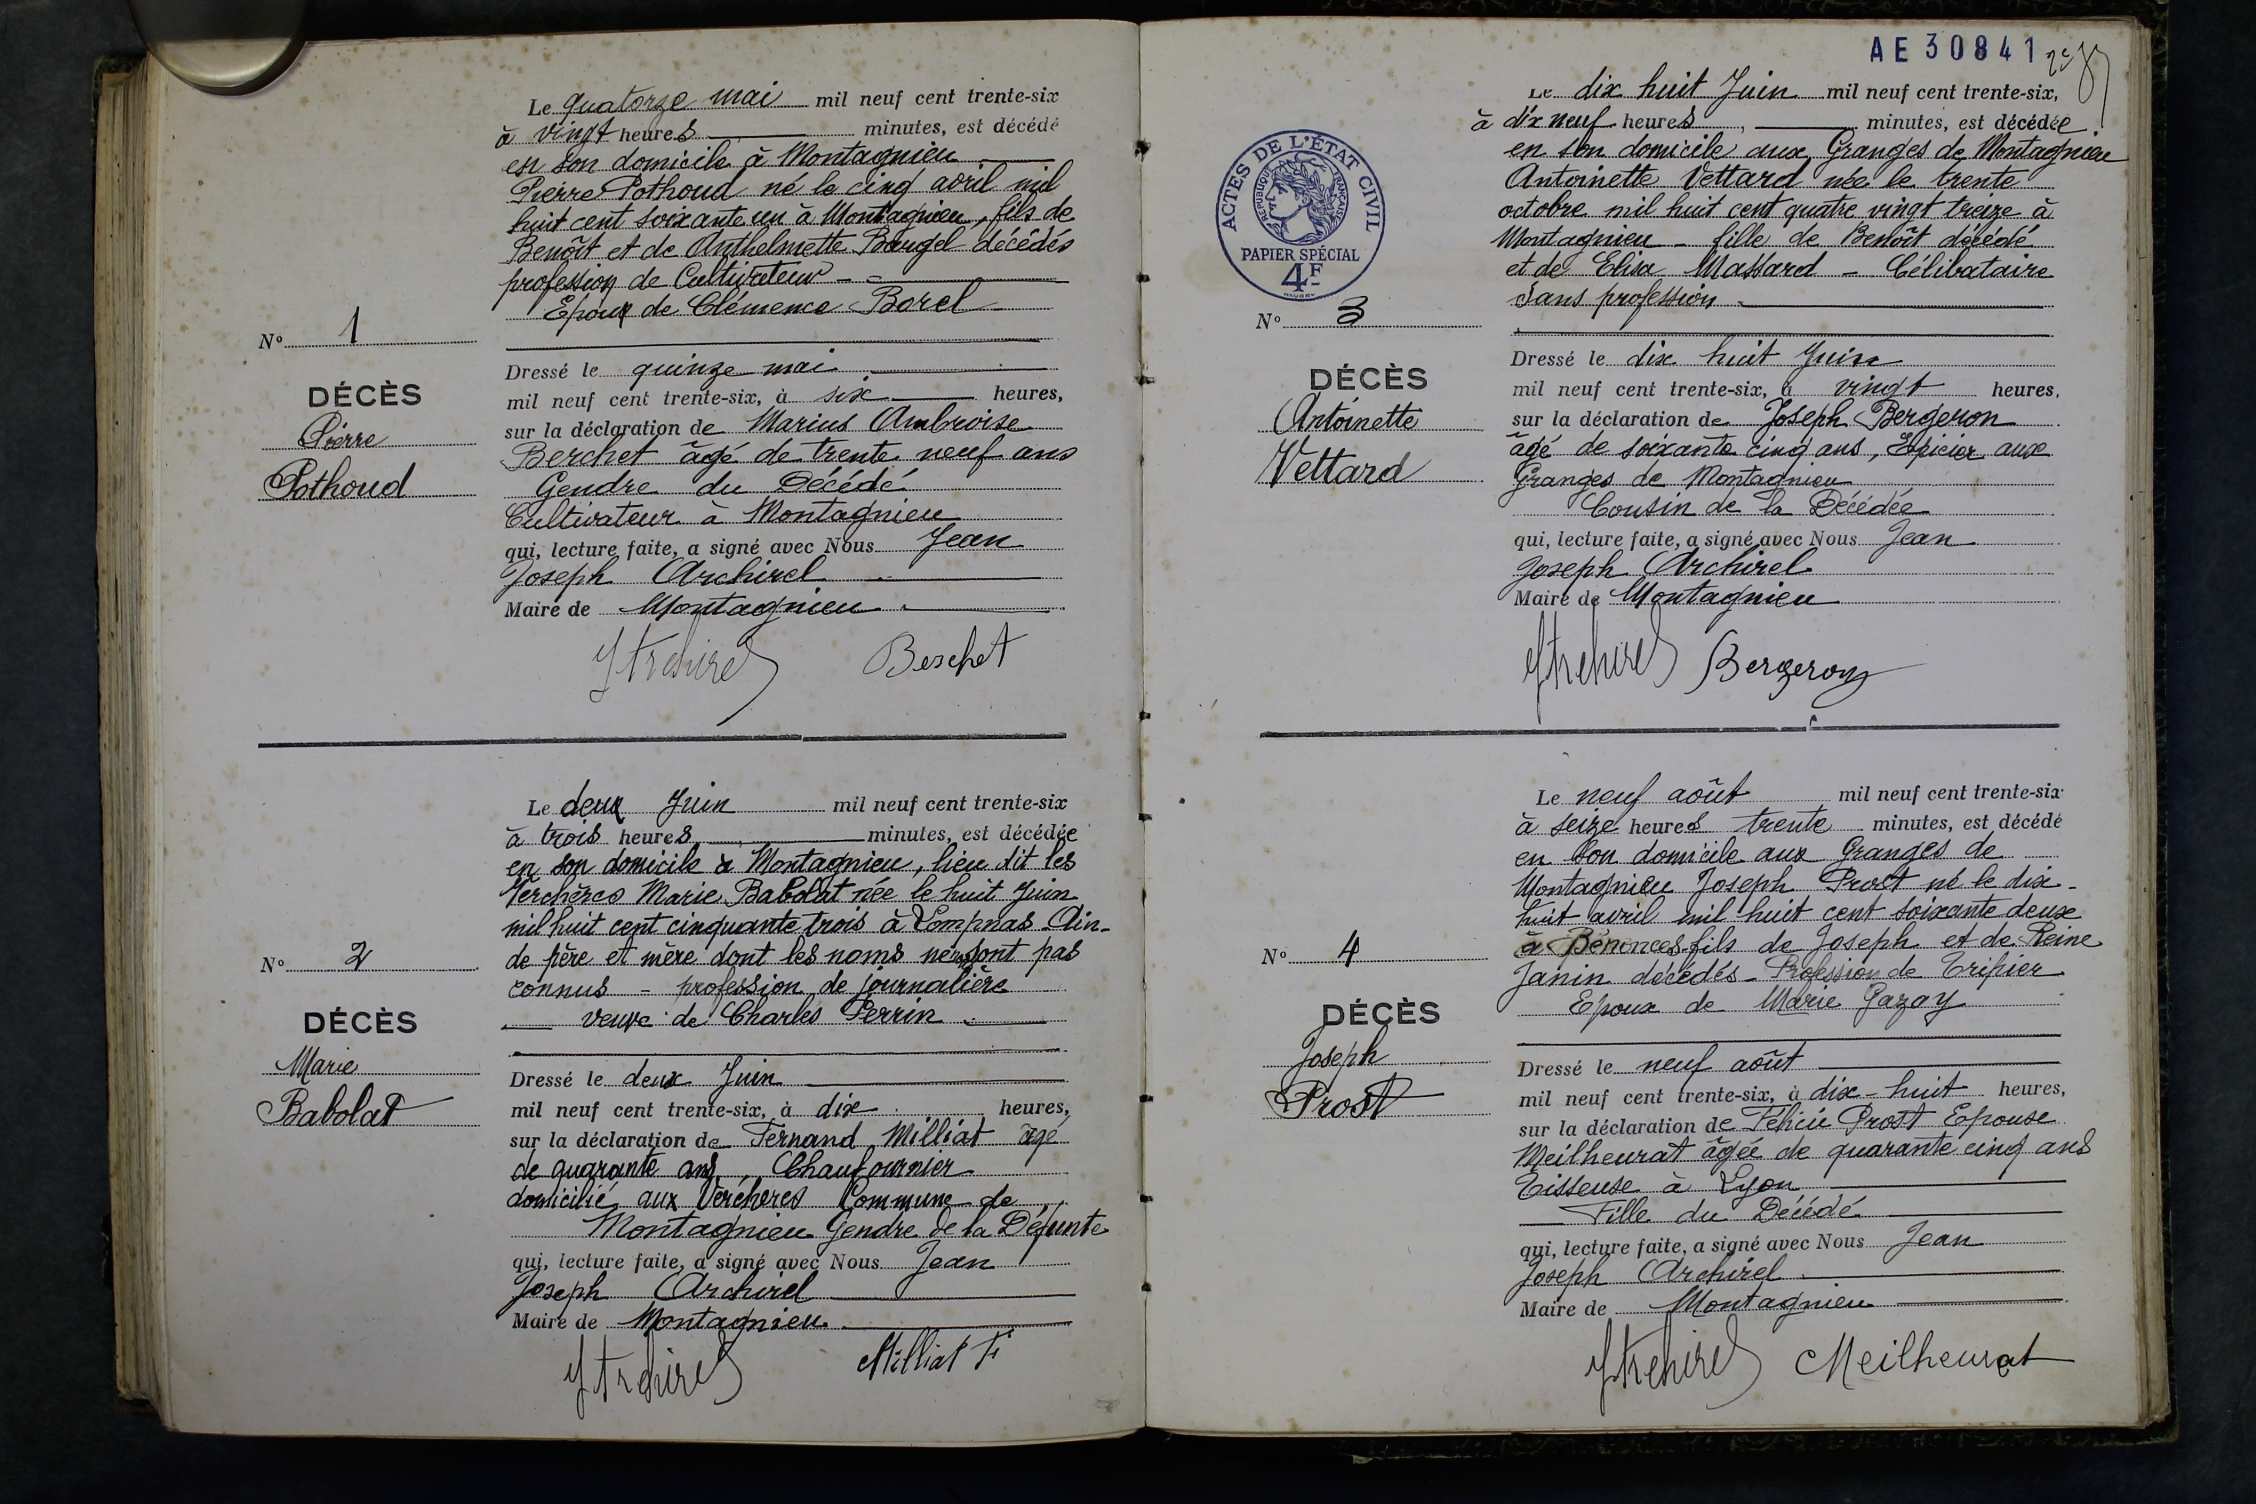 Le quatorze mai mil neuf cent trente-six
à vingt heures minutes, est décédé
en son domicile à Montagnieu
Pierre Pothoud né le cinq avril mil
huit cent soixante un à Montagnieu, fils de
Benoît et de Anthelmette décédés
profession de Cultivateur
Epoux de Clémence Borel
N° 1
DÉCÈS
Pierre
Pothoud
Dressé le quinze mai
mil neuf cent trente-six, à six heures,
sur la déclaration de Marius Ambroise
Berchet âgé de trente neuf ans
Gendre du Décédé
Cultivateur à Montagnieu
qui, lecture faite, a signé avec Nous Jean
Joseph Archirel
Maire de Montagnieu
JArchirel Berchet
Le deux Juin mil neuf cent trente-six
à trois heures minutes, est décédée
en son domicile à Montagnieu, lieu dit les
Verchères Marie Babolat née le huit Juin
mil huit cent cinquante trois à Lompnas Ain-
de père et mère dont les noms ne sont pas
connus - profession de journalière
veuve de Charles Perrin
N° 2
DÉCÈS
Marie
Babolat
Dressé le deux Juin
mil neuf cent trente-six, à dix heures,
sur la déclaration de Fernand Milliat âgé
de quarante ans, Chaufournier
domicilié aux Verchères Commune de
Montagnieu Gendre de la Défunte
qui, lecture faite, a signé avec Nous Jean
Joseph Archirel
Maire de Montagnieu
JArchirel Milliat F
AE 30841
ACTES DE L'ÉTAT CIVIL
RÉPUBLIQUE FRANÇAISE
PAPIER SPÉCIAL
4F
Le dix huit Juin mil neuf cent trente-six,
à dix neuf heures, minutes, est décédée
en son domicile aux Granges de Montagnieu
Antoinette Vettard née le trente
octobre mil huit cent quatre vingt treize à
Montagnieu - fille de Benoît décédé
et de Elisa Massard - Célibataire
Sans profession
N° 3
DÉCÈS
Antoinette
Vettard
Dressé le dix huit Juin
mil neuf cent trente-six, à vingt heures,
sur la déclaration de Joseph Bergeron
âgé de soixante cinq ans, Epicier aux
Granges de Montagnieu
Cousin de la Décédée
qui, lecture faite, a signé avec Nous Jean
Joseph Archirel
Maire de Montagnieu
JArchirel Bergeron
Le neuf août mil neuf cent trente-six
à seize heures trente minutes, est décédé
en son domicile aux Granges de
Montagnieu Joseph Prost né le dix-
huit avril mil huit cent soixante deux
à Bénonces fils de Joseph et de Reine
Janin décédés - Profession de Tripier
Epoux de Marie Gazay
N° 4
DÉCÈS
Joseph
Prost
Dressé le neuf août
mil neuf cent trente-six, à dix-huit heures,
sur la déclaration de Félicie Prost Epouse
Meilheurat âgée de quarante cinq ans
Tisseuse à Lyon
Fille du Décédé
qui, lecture faite, a signé avec Nous Jean
Joseph Archirel
Maire de Montagnieu
JArchirel Meilheurat